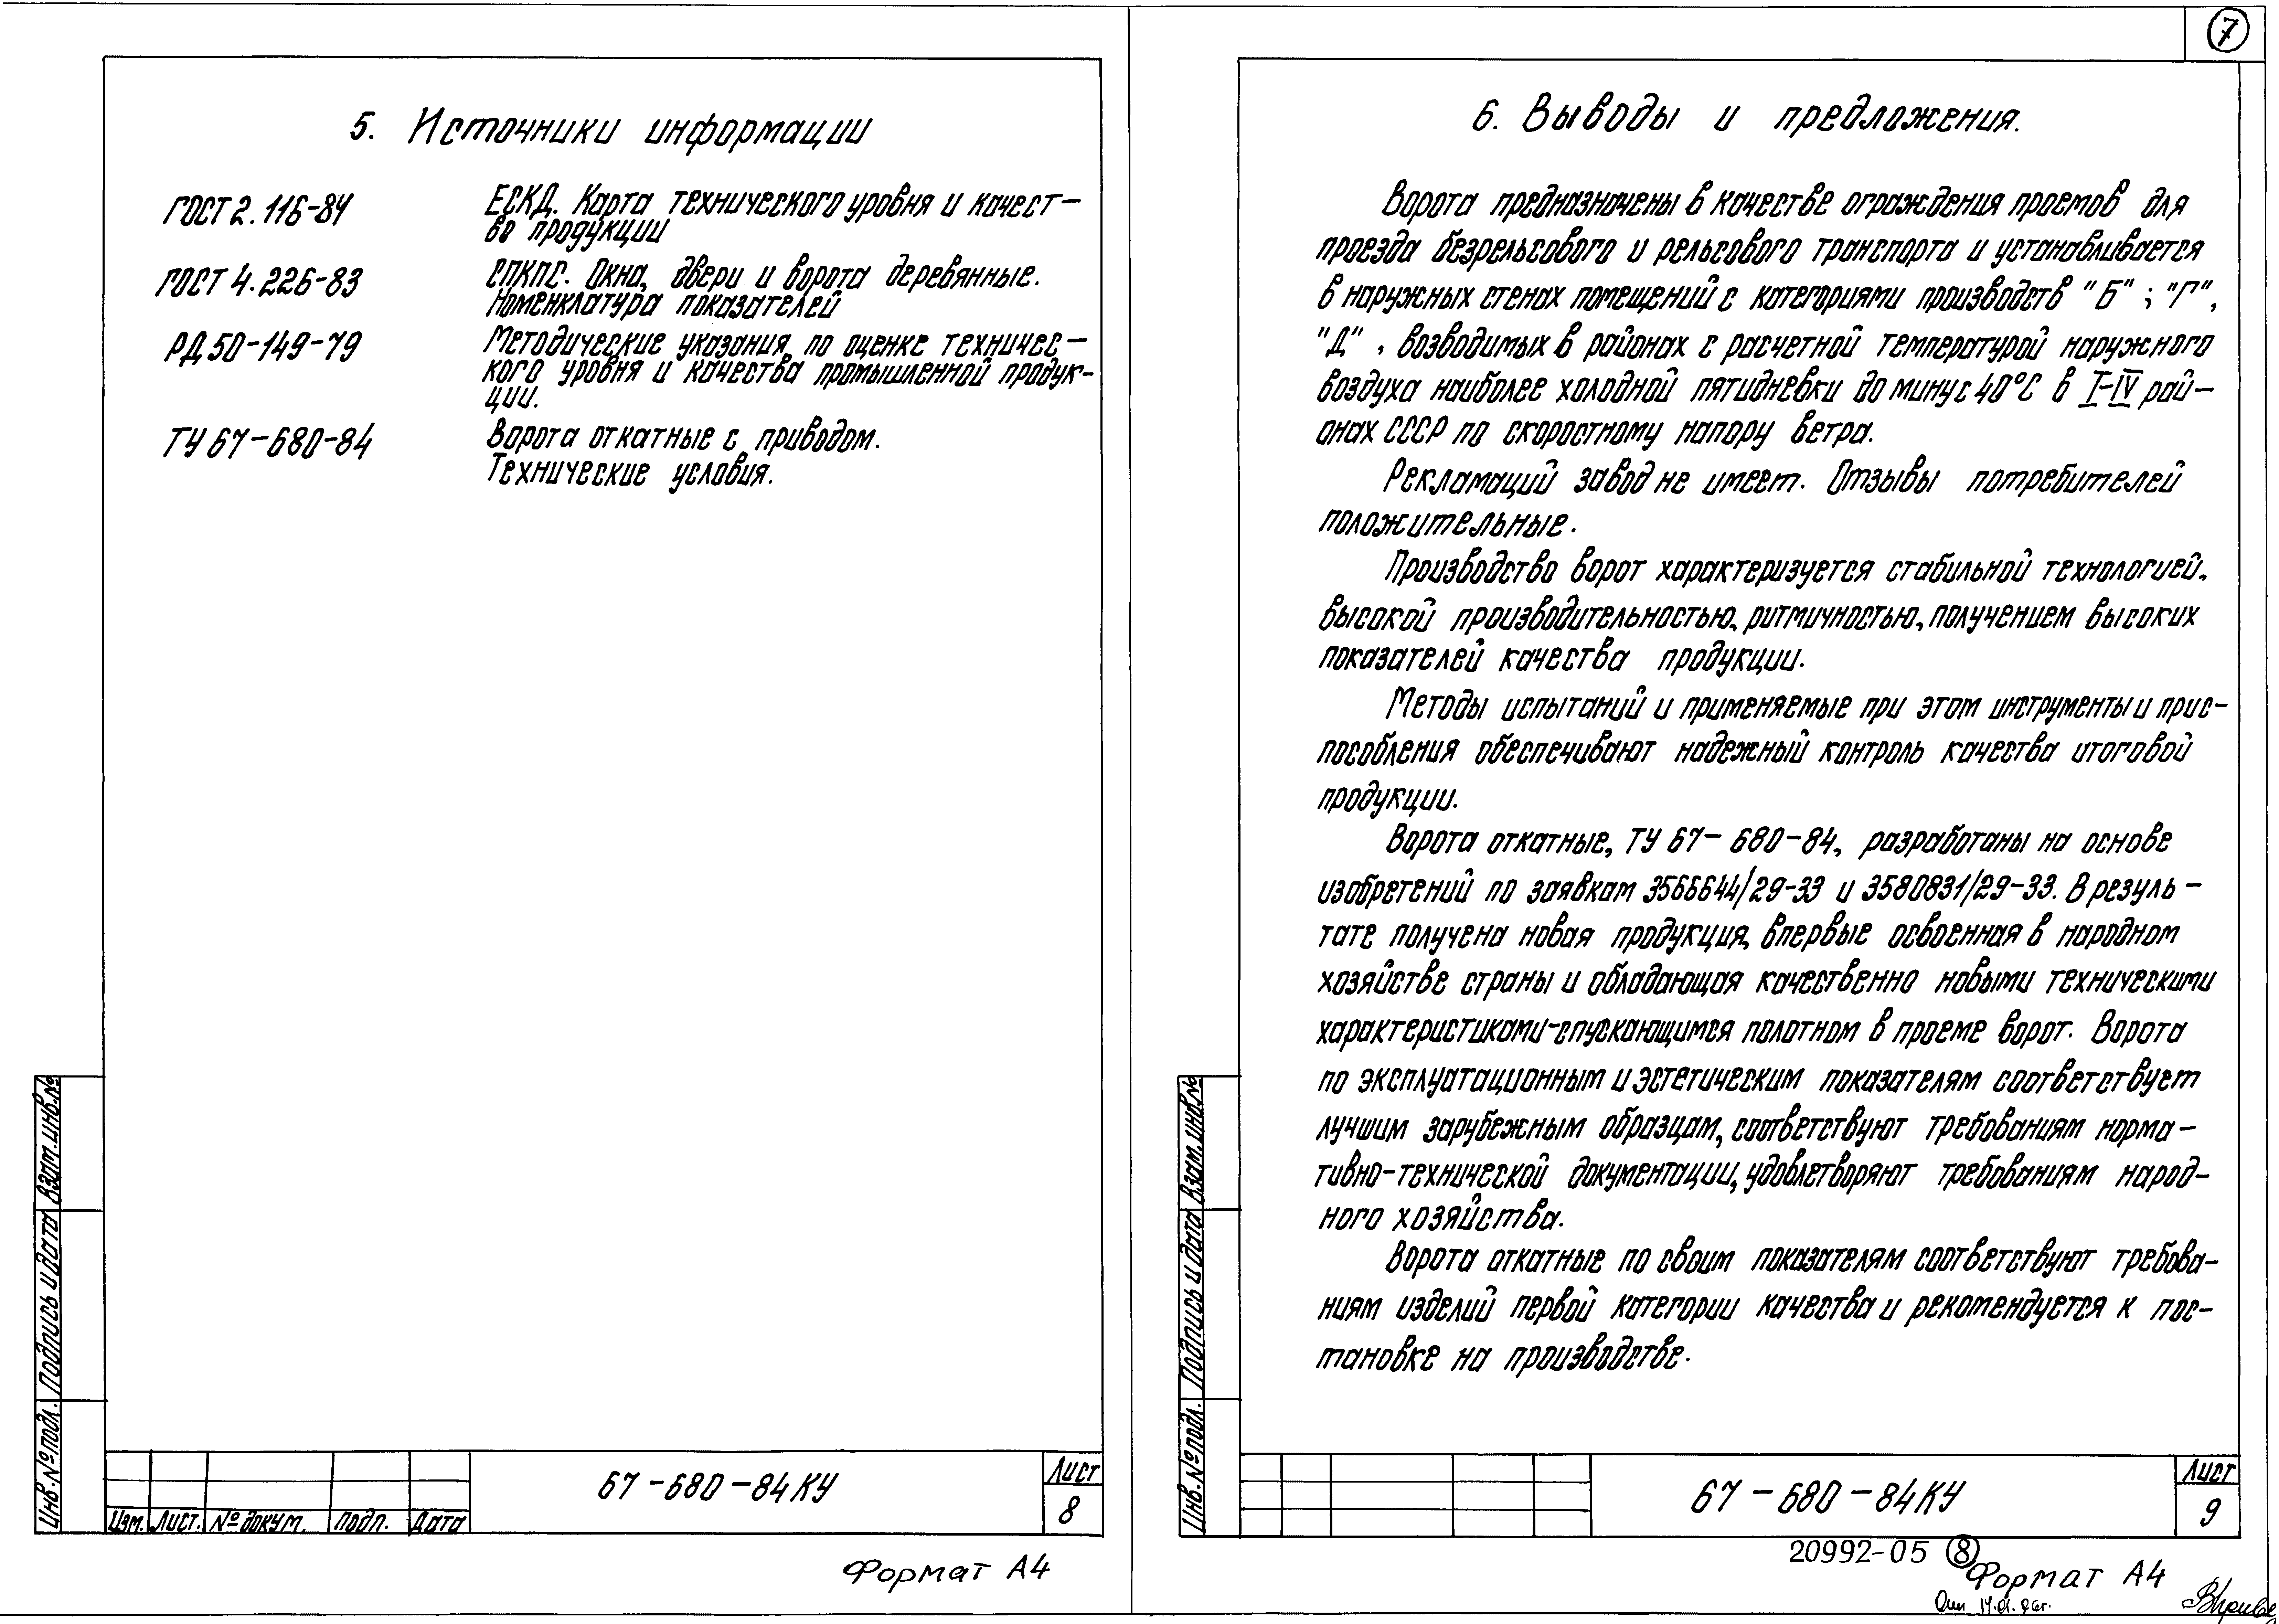 7
5. Источники информации
ГОСТ 2.116-84 ЕСКД. Карта технического уровня и качест-
во продукции
ГОСТ 4.226-83 СПКПС. Окна, двери и ворота деревянные.
Номенклатура показателей
РД 50-149-79 Методические указания по оценке техничес-
кого уровня и качества промышленной продук-
ции.
ТУ 67-680-84 Ворота откатные с приводом.
Технические условия.
Инв.№подл. Подпись и дата Взам.инв.№
Изм. Лист. № докум. Подп. Дата
67-680-84КУ
Лист
8
Формат А4
6. Выводы и предложения.
Ворота предназначены в качестве ограждения проемов для
проезда безрельсового и рельсового транспорта и устанавливается
в наружных стенах помещений с категориями производств "Б"; "Г",
"Д", возводимых в районах с расчетной температурой наружного
воздуха наиболее холодной пятидневки до минус 40°С в I-IV рай-
онах СССР по скоростному напору ветра.
Рекламаций завод не имеет. Отзывы потребителей
положительные.
Производство ворот характеризуется стабильной технологией,
высокой производительностью, ритмичностью, получением высоких
показателей качества продукции.
Методы испытаний и применяемые при этом инструменты и прис-
пособления обеспечивают надежный контроль качества итоговой
продукции.
Ворота откатные, ТУ 67-680-84, разработаны на основе
изобретений по заявкам 3566644/29-33 и 3580831/29-33. В резуль-
тате получена новая продукция, впервые освоенная в народном
хозяйстве страны и обладающая качественно новыми техническими
характеристиками-спускающимся полотном в проеме ворот. Ворота
по эксплуатационным и эстетическим показателям соответствует
лучшим зарубежным образцам, соответствуют требованиям норма-
тивно-технической документации, удовлетворяют требованиям народ-
ного хозяйства.
Ворота откатные по своим показателям соответствуют требова-
ниям изделий первой категории качества и рекомендуется к пос-
тановке на производстве.
Инв.№подл. Подпись и дата Взам.инв.№
67-680-84КУ
Лист
9
20992-05 8
Формат А4